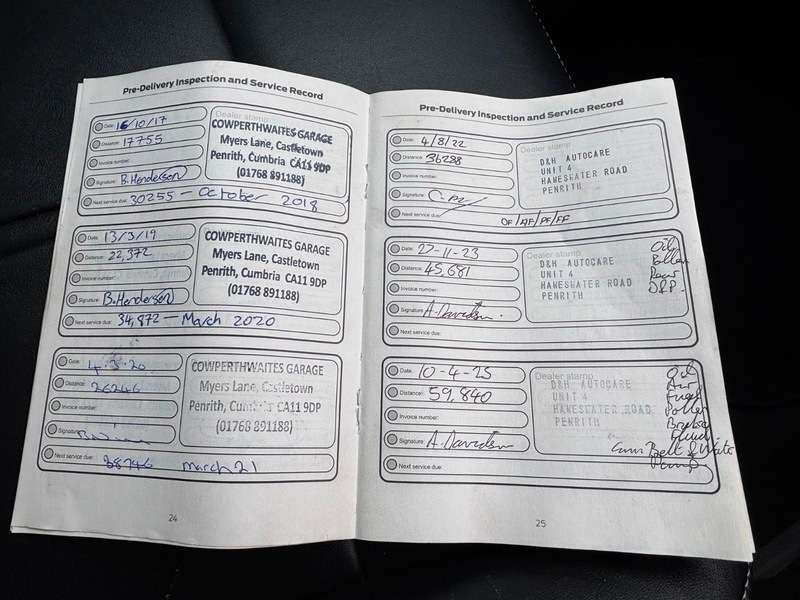 Pre-Delivery Inspection and Service Record
Date: 16/10/17
Distance: 17755
Invoice number:
Signature: B. Henderson
Next service due: 30255 - October 2018
Dealer stamp
COWPERTHWAITES GARAGE
Myers Lane, Castletown
Penrith, Cumbria CA11 9DP
(01768 891188)
Date: 13/3/19
Distance: 22,372
Invoice number:
Signature: B. Henderson
Next service due: 34,872 - March 2020
COWPERTHWAITES GARAGE
Myers Lane, Castletown
Penrith, Cumbria CA11 9DP
(01768 891188)
Date: 4.3.20
Distance: 26246
Invoice number:
Signature:
Next service due: 38746 march 21
COWPERTHWAITES GARAGE
Myers Lane, Castletown
Penrith, Cumbria CA11 9DP
(01768 891188)
24
Pre-Delivery Inspection and Service Record
Date: 4/8/22
Distance: 36288
Invoice number:
Signature:
Next service due: OF/AF/PF/FF
Dealer stamp
D&H AUTOCARE
UNIT 4
HAWESWATER ROAD
PENRITH
Date: 27-11-23
Distance: 45,681
Invoice number:
Signature: A. Davidson
Next service due:
Dealer stamp
D&H AUTOCARE
UNIT 4
HAWESWATER ROAD
PENRITH
Oil
Pollen
Date: 10-4-25
Distance: 59,840
Invoice number:
Signature: A. Davidson
Next service due:
Dealer stamp
D&H AUTOCARE
UNIT 4
HAWESWATER ROAD
PENRITH
Oil
Air
Fuel
Pollen
Brake
Fluid
Cam Belt & Water
Pump.
25